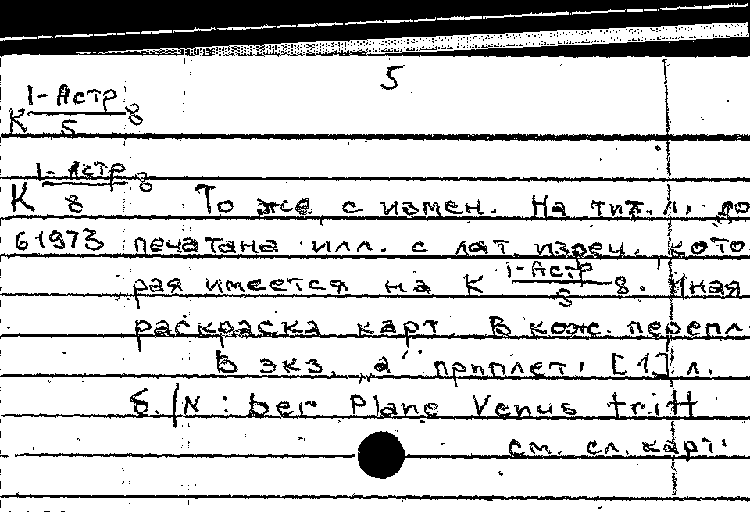 5
К 1-Астр/5 8
К 1-Астр/8 8 То же с измен. На тит. л. до
61973 печатана илл. с лат. изреч. кото
рая имеется на К 1-Астр/8 8. Иная
раскраска карт. В кож. перепл.
В экз. "а" приплет. [1] л.
б./N: Der Plane Venus tritt
см. сл. карт.